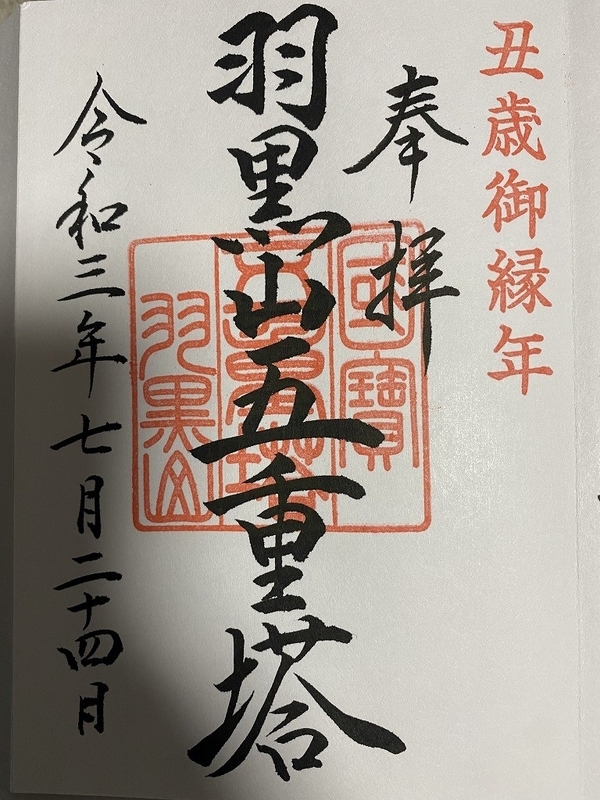 丑歳御縁年
奉拝
羽黒山五重塔
國寶
五重塔
羽黒山
令和三年七月二十四日